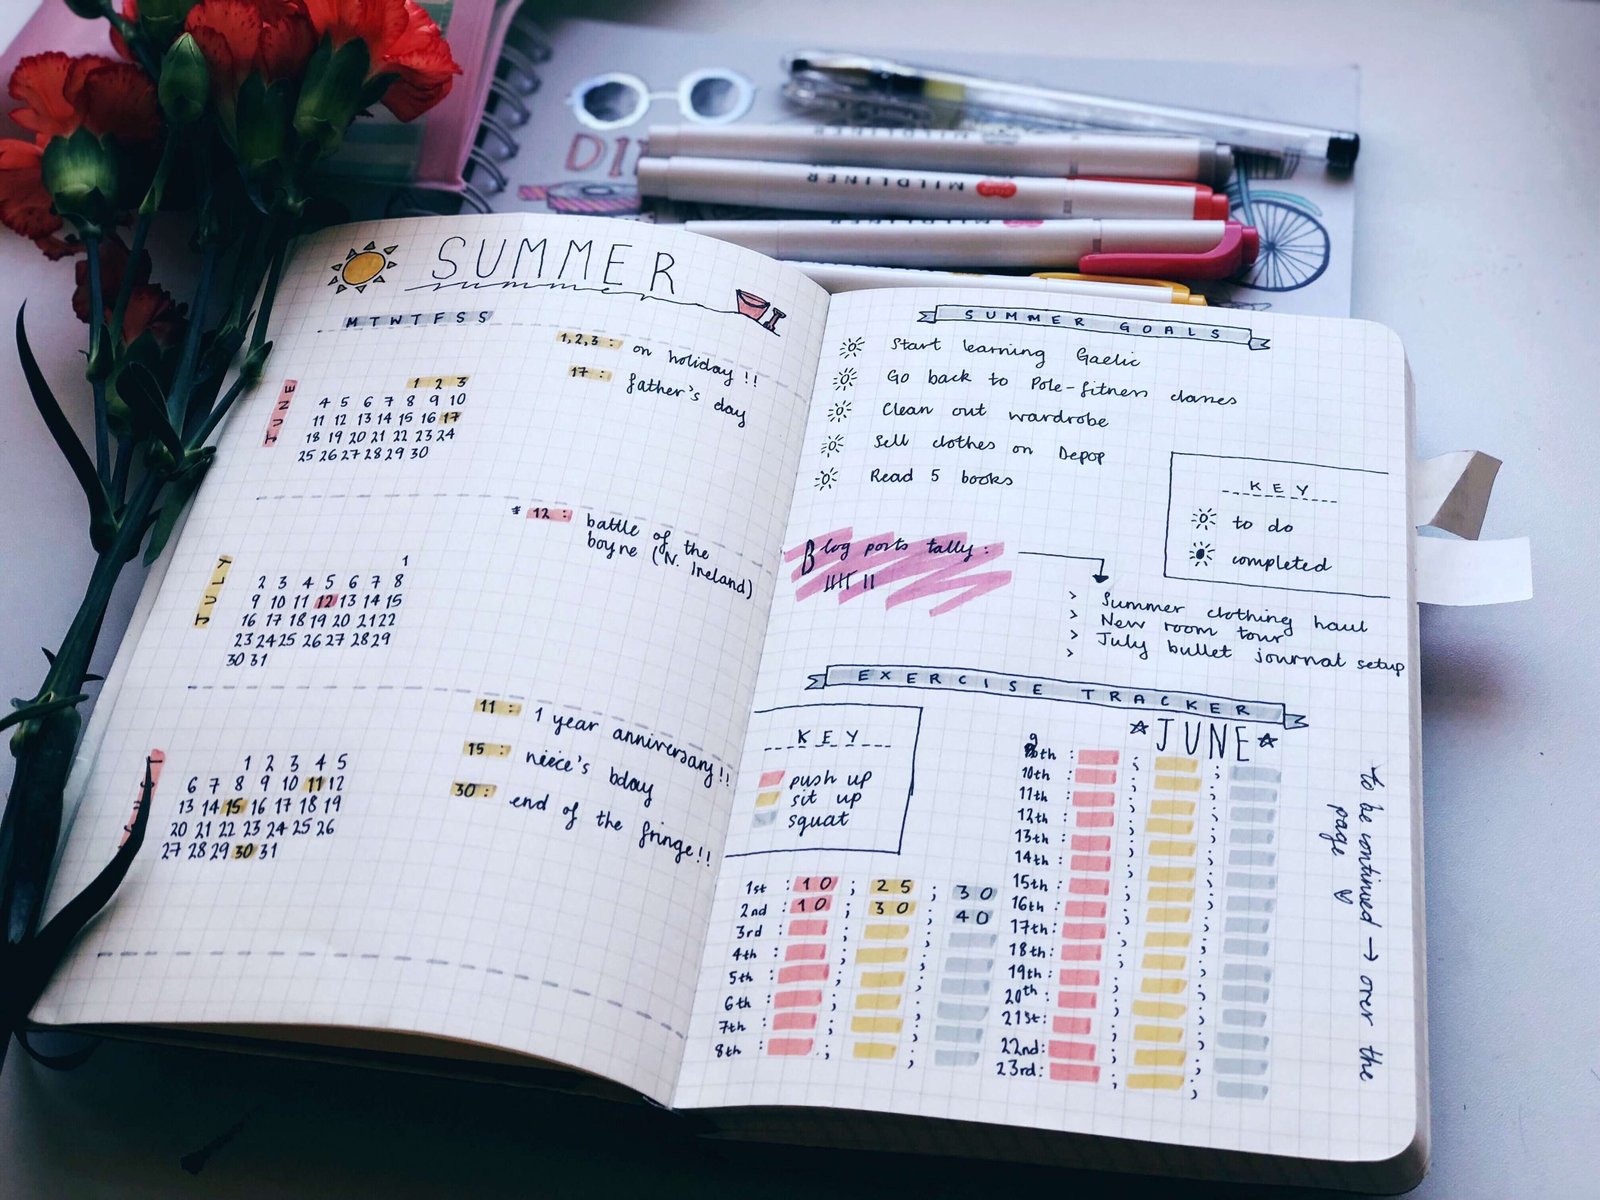 DI
MILDLINER
MILDLINER
SUMMER
summer
M T W T F S S
JUNE
1 2 3
4 5 6 7 8 9 10
11 12 13 14 15 16 17
18 19 20 21 22 23 24
25 26 27 28 29 30
1,2,3 : on holiday !!
17 : father's day
JULY
1
2 3 4 5 6 7 8
9 10 11 12 13 14 15
16 17 18 19 20 21 22
23 24 25 26 27 28 29
30 31
* 12 : battle of the
boyne (N. Ireland)
1 2 3 4 5
6 7 8 9 10 11 12
13 14 15 16 17 18 19
20 21 22 23 24 25 26
27 28 29 30 31
11 : 1 year anniversary!!
15 : neice's bday
30 : end of the fringe!!
SUMMER GOALS
Start learning Gaelic
Go back to Pole-fitness classes
Clean out wardrobe
Sell clothes on Depop
Read 5 books
KEY
to do
completed
Blog posts tally :
> Summer clothing haul
> New room tour
> July bullet journal setup
>
EXERCISE TRACKER
KEY
push up
sit up
squat
1st : 10 ; 25 ; 30
2nd : 10 ; 30 ; 40
3rd : ; ;
4th : ; ;
5th : ; ;
6th : ; ;
7th : ; ;
8th : ; ;
JUNE
9th : ; ;
10th : ; ;
11th : ; ;
12th : ; ;
13th : ; ;
14th : ; ;
15th : ; ;
16th : ; ;
17th : ; ;
18th : ; ;
19th : ; ;
20th : ; ;
21st : ; ;
22nd : ; ;
23rd : ; ;
to be continued → over the
page